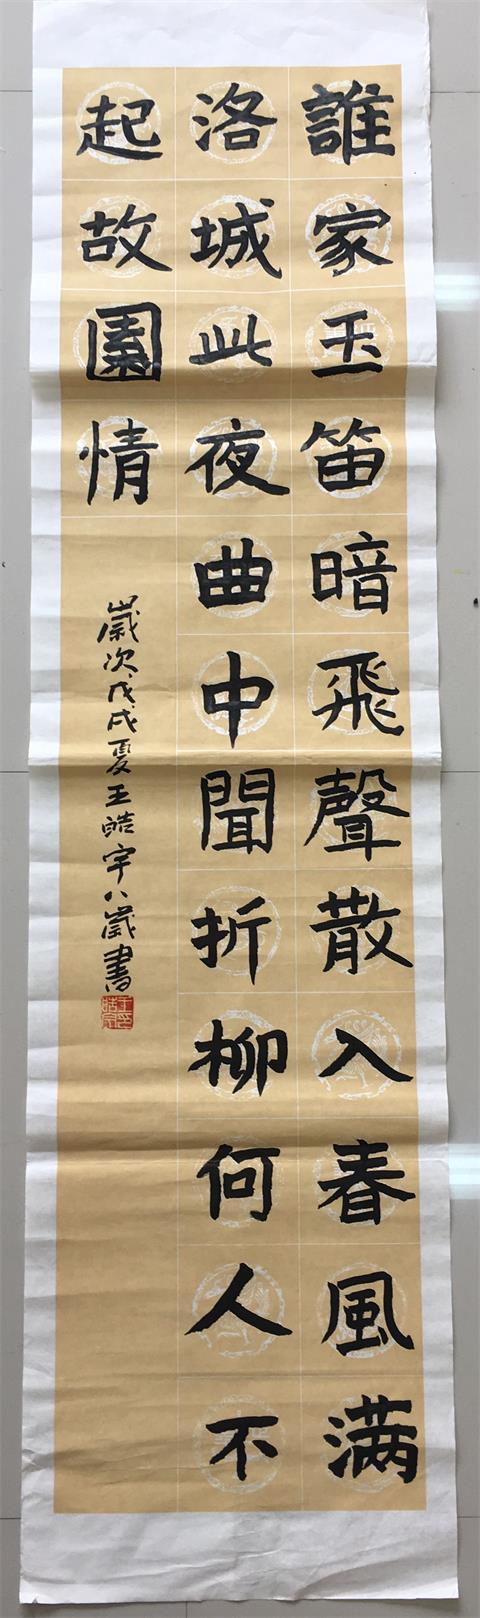 誰家玉笛暗飛聲散入春風满
洛城此夜曲中聞折柳何人不
起故園情
歲次戊戌夏王皓宇八歲書